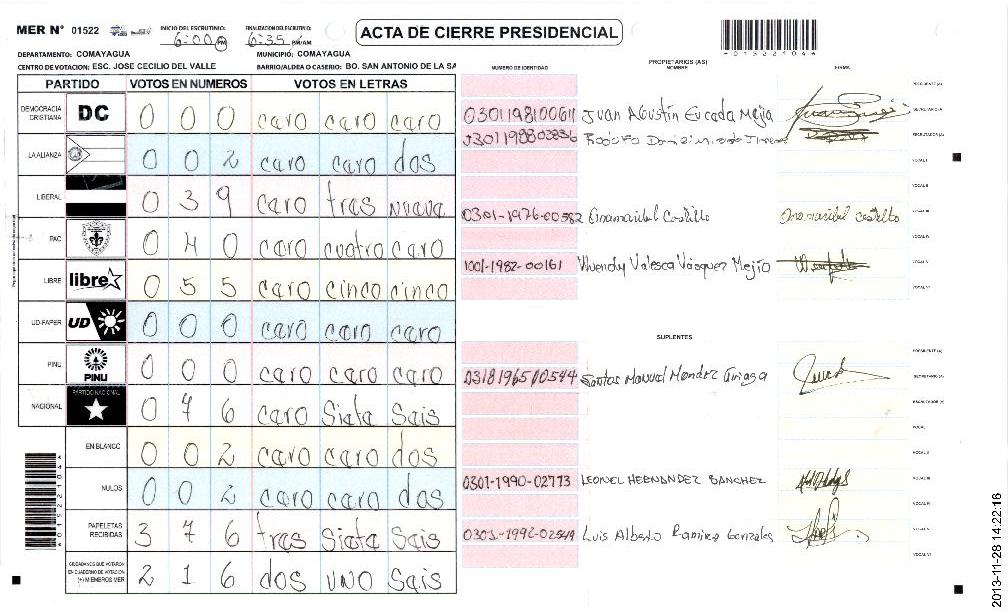 MER N° 01522 INICIO DEL ESCRUTINIO: 6:00 PM FINALIZACION DEL ESCRUTINIO: 6:35 PM/AM
ACTA DE CIERRE PRESIDENCIAL
DEPARTAMENTO: COMAYAGUA MUNICIPIO: COMAYAGUA
CENTRO DE VOTACION: ESC. JOSE CECILIO DEL VALLE BARRIO/ALDEA O CASERIO: BO. SAN ANTONIO DE LA SA
PARTIDO VOTOS EN NUMEROS VOTOS EN LETRAS
DEMOCRACIA CRISTIANA DC 0 0 0 caro caro caro
LA ALIANZA 0 0 2 caro caro dos
LIBERAL 0 3 9 caro tras nuava
PAC 0 4 0 caro cuatro caro
LIBRE libre 0 5 5 caro cinco cinco
UD-FAPER UD 0 0 0 caro caro caro
PINU PINU 0 0 0 caro caro caro
NACIONAL PARTIDO NACIONAL 0 7 6 caro Siata Sais
EN BLANCO 0 0 2 caro caro dos
NULOS 0 0 2 caro caro dos
PAPELETAS RECIBIDAS 3 7 6 tras Siata Sais
CIUDADANOS QUE VOTARON EN CUADERNO DE VOTACION (+) MIEMBROS MER 2 1 6 dos uno Sais
NUMERO DE IDENTIDAD PROPIETARIOS (AS) NOMBRE FIRMA
PRESIDENTE (A)
Juan Agustín Mejia SECRETARIO (A)
ESCRUTADOR (A)
VOCAL I
VOCAL II
0301-1976-00582 Anamaribel Castillo Anamaribel castillo VOCAL III
VOCAL IV
1001-1982-00161 Wuendy Valesca Vásquez Mejía VOCAL V
VOCAL VI
SUPLENTES
PRESIDENTE (A)
Santos Manuel Mendez SECRETARIO (A)
ESCRUTADOR (A)
VOCAL I
VOCAL II
0301-1990-02773 LEONEL HERNANDEZ SANCHEZ VOCAL III
VOCAL IV
Luis Alberto Ramirez Gonzales VOCAL V
VOCAL VI
*01522104*
*01522104*
2013-11-28 14:22:16